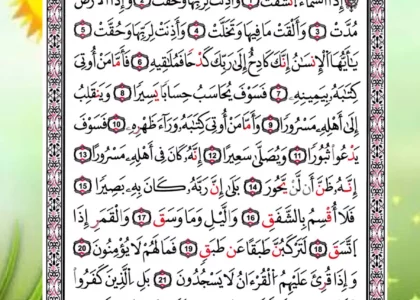 إِذَا السَّمَاءُ انشَقَّتْ ١ وَأَذِنَتْ لِرَبِّهَا وَحُقَّتْ ٢ وَإِذَا الْأَرْضُ
مُدَّتْ ٣ وَأَلْقَتْ مَا فِيهَا وَتَخَلَّتْ ٤ وَأَذِنَتْ لِرَبِّهَا وَحُقَّتْ ٥
يَا أَيُّهَا الْإِنسَانُ إِنَّكَ كَادِحٌ إِلَى رَبِّكَ كَدْحًا فَمُلَاقِيهِ ٦ فَأَمَّا مَنْ أُوتِيَ
كِتَابَهُ بِيَمِينِهِ ٧ فَسَوْفَ يُحَاسَبُ حِسَابًا يَسِيرًا ٨ وَيَنقَلِبُ
إِلَى أَهْلِهِ مَسْرُورًا ٩ وَأَمَّا مَنْ أُوتِيَ كِتَابَهُ وَرَاءَ ظَهْرِهِ ١٠ فَسَوْفَ
يَدْعُو ثُبُورًا ١١ وَيَصْلَى سَعِيرًا ١٢ إِنَّهُ كَانَ فِي أَهْلِهِ مَسْرُورًا ١٣
إِنَّهُ ظَنَّ أَن لَّن يَحُورَ ١٤ بَلَى إِنَّ رَبَّهُ كَانَ بِهِ بَصِيرًا ١٥
فَلَا أُقْسِمُ بِالشَّفَقِ ١٦ وَاللَّيْلِ وَمَا وَسَقَ ١٧ وَالْقَمَرِ إِذَا
اتَّسَقَ ١٨ لَتَرْكَبُنَّ طَبَقًا عَن طَبَقٍ ١٩ فَمَا لَهُمْ لَا يُؤْمِنُونَ ٢٠
وَإِذَا قُرِئَ عَلَيْهِمُ الْقُرْآنُ لَا يَسْجُدُونَ ٢١ بَلِ الَّذِينَ كَفَرُوا